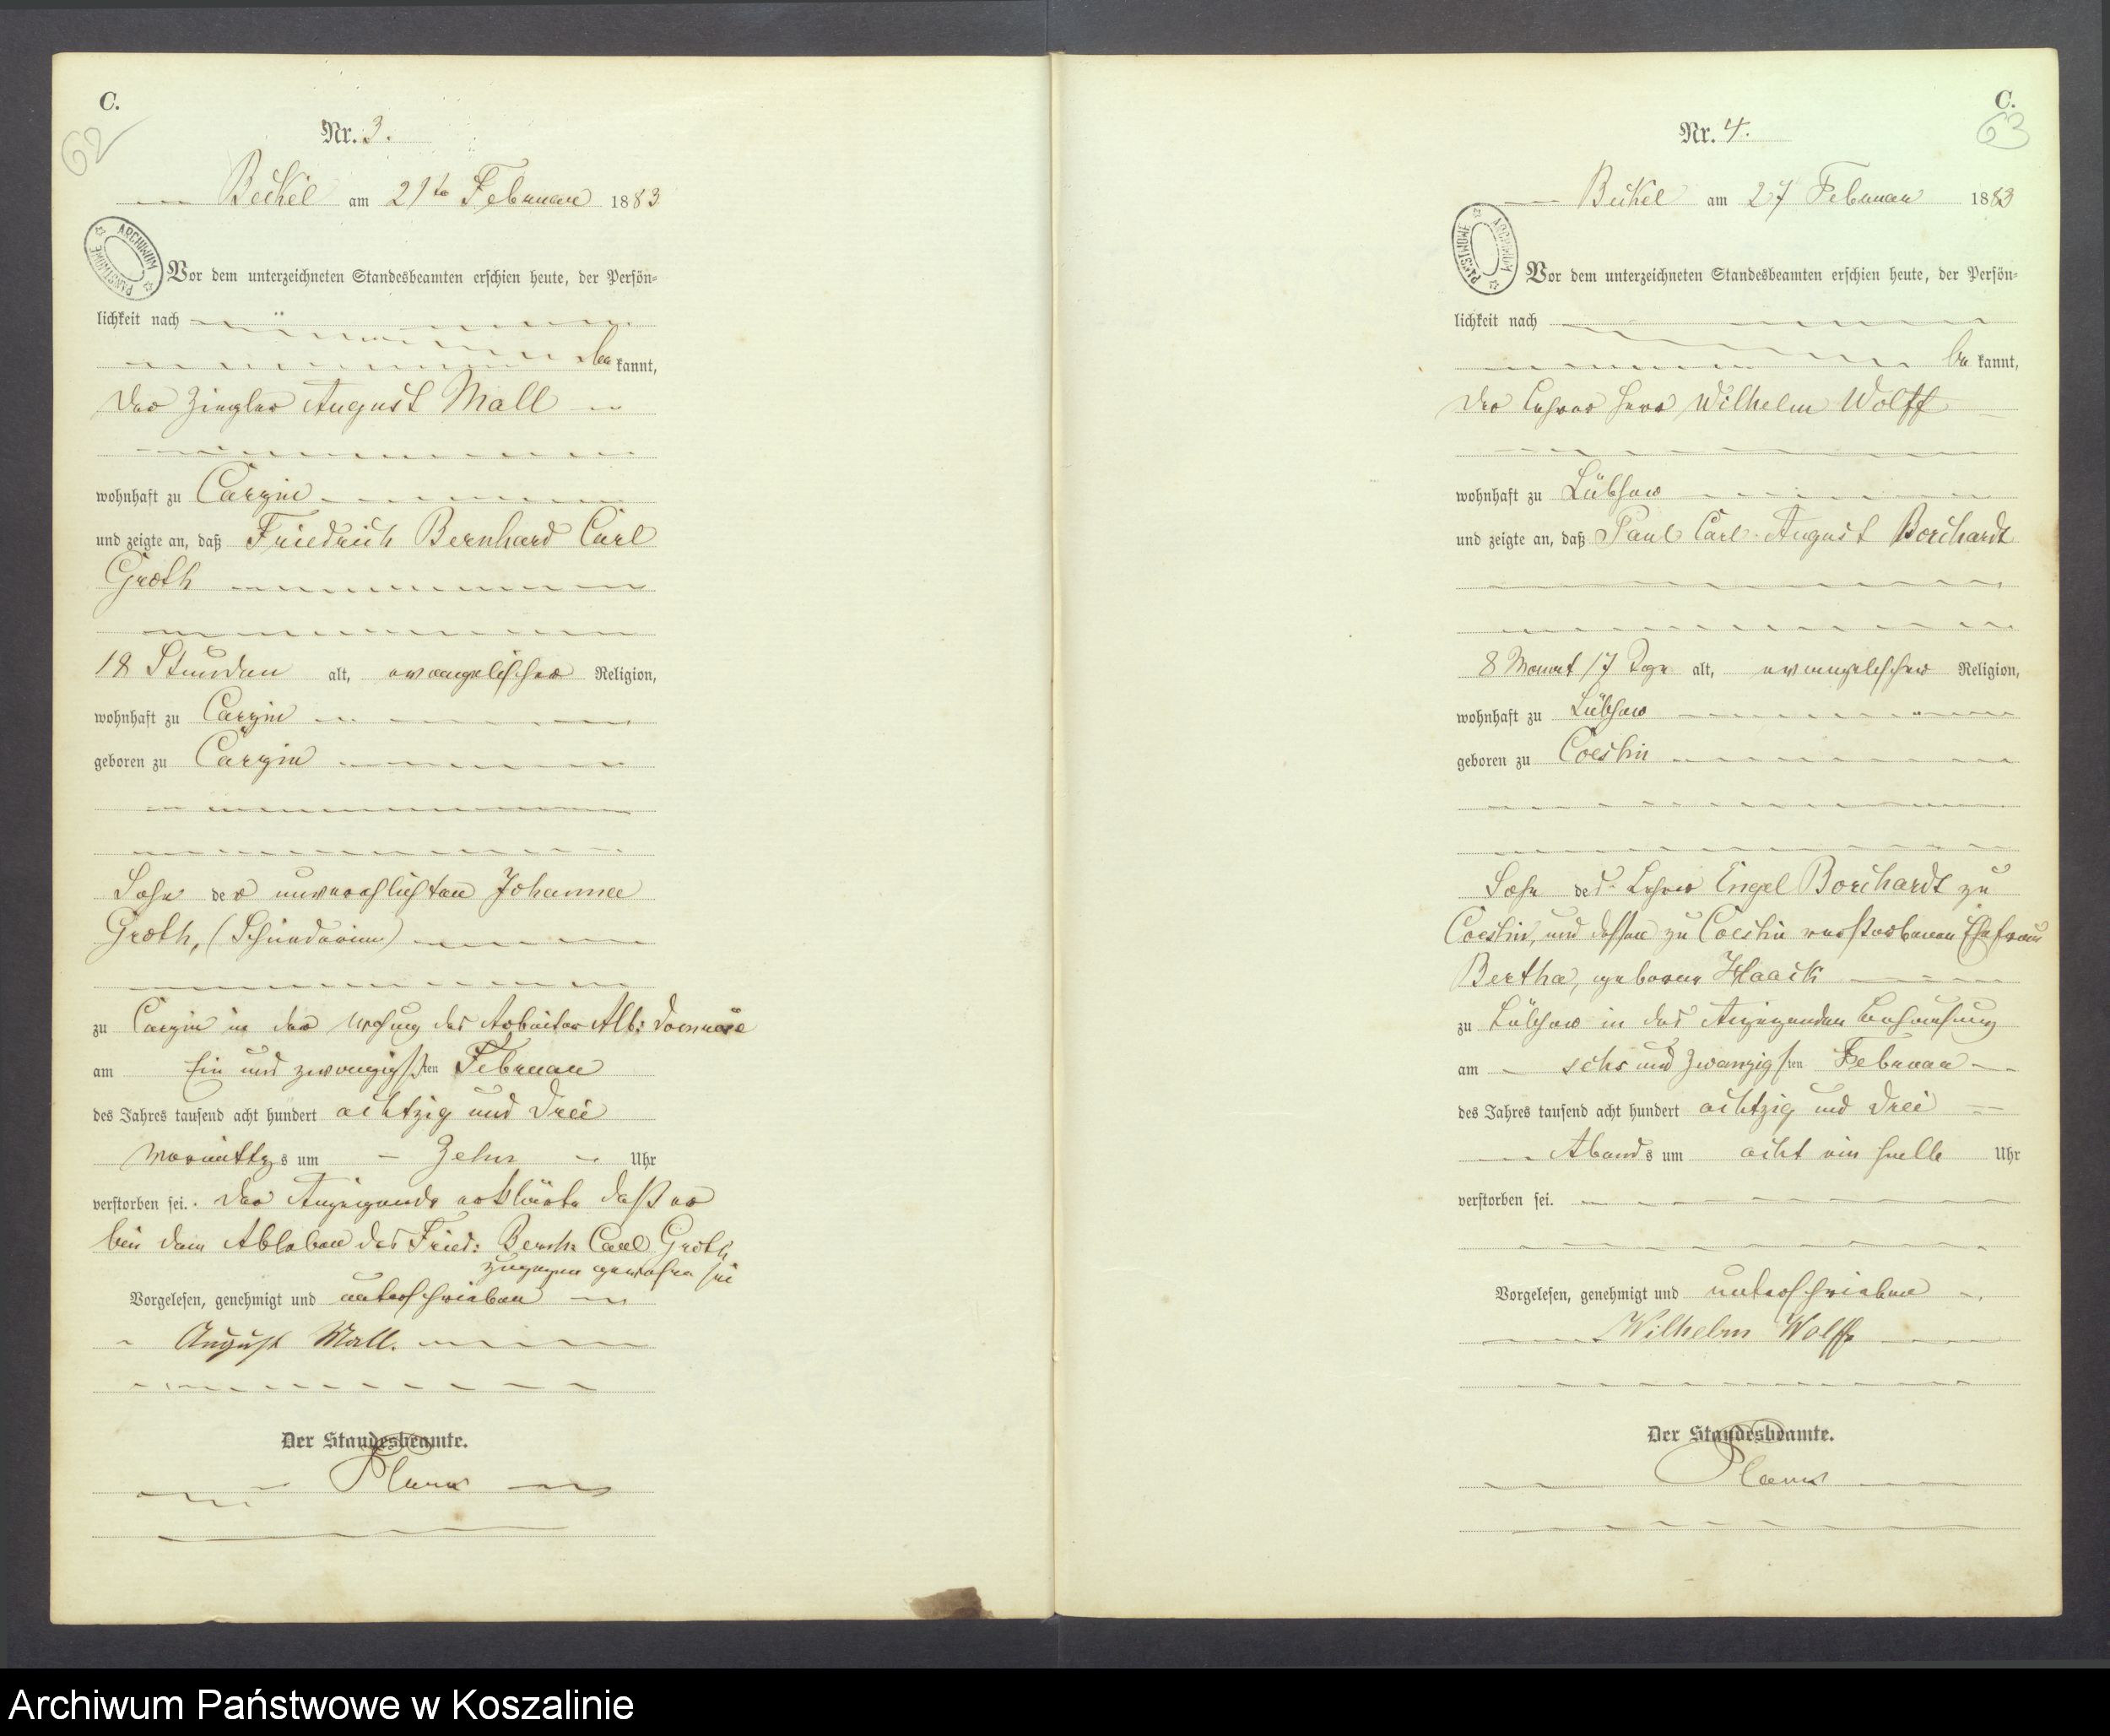 C.
62
Nr. 3.
Beikel am 21te Februar 1883
ARCHIWUM PAŃSTWOWE
Vor dem unterzeichneten Standesbeamten erschien heute, der Persön-
lichkeit nach
be kannt,
der Ziegler August Mall
wohnhaft zu Cargin
und zeigte an, daß Friedrich Bernhard Carl
Groth
18 Stunden alt, evangelischer Religion,
wohnhaft zu Cargin
geboren zu Cargin
Sohn der unverehlichten Johanna
Groth,
zu Cargin in der des Arbeiter Alb:
am Ein und zwanzigsten Februar
des Jahres tausend acht hundert achtzig und drei
Vormittags um Zehn Uhr
verstorben sei. Der Anzeigende erklärte daß er
bei dem Ableben des Fried: Bernh: Carl Groth
zugegen gewesen sei
Vorgelesen, genehmigt und unterschrieben
August Mall.
Der Standesbeamte.
C.
63
Nr. 4.
Beikel am 27 Februar 1883
ARCHIWUM PAŃSTWOWE
Vor dem unterzeichneten Standesbeamten erschien heute, der Persön-
lichkeit nach
be kannt,
der Lehrer Herr Wilhelm Wolff
wohnhaft zu Lübsow
und zeigte an, daß Paul Carl August Borchardt
8 Monat 17 Tage alt, evangelischer Religion,
wohnhaft zu Lübsow
geboren zu Coeslin
Sohn des Lehrer Engel Borchardt zu
Coeslin, und dessen zu Coeslin verstorbenen Ehefrau
Bertha, geborne Haack
zu Lübsow in des Anzeigenden Behausung
am sechs und zwanzigsten Februar
des Jahres tausend acht hundert achtzig und drei
Abends um acht ein halb Uhr
verstorben sei.
Vorgelesen, genehmigt und unterschrieben
Wilhelm Wolff
Der Standesbeamte.
Archiwum Państwowe w Koszalinie